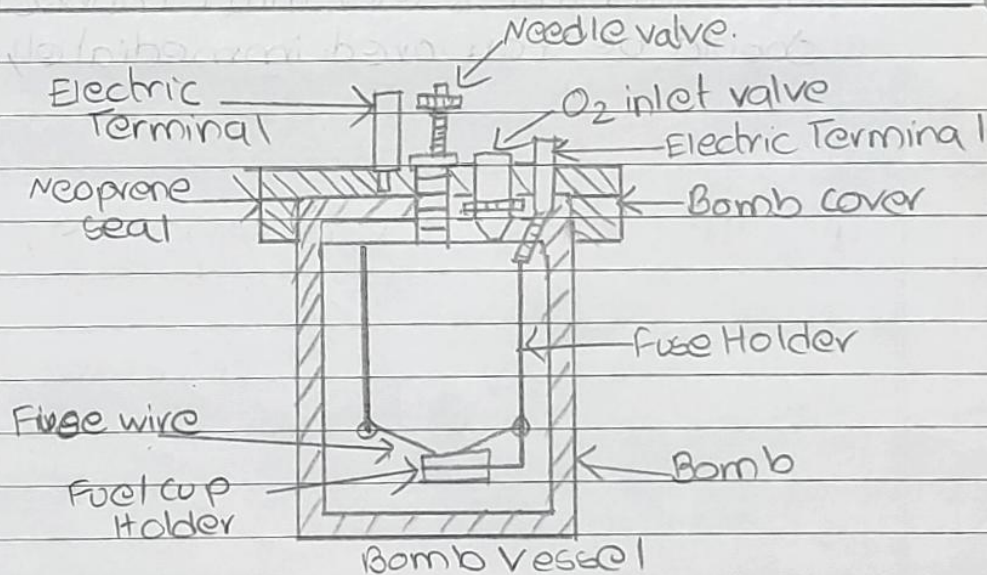 Needle valve.
Electric
Terminal
O2 inlet valve
Electric Terminal
Neoprene
seal
Bomb cover
Fuse Holder
Fuse wire
Bomb
Fuel cup
Holder
Bomb Vessel